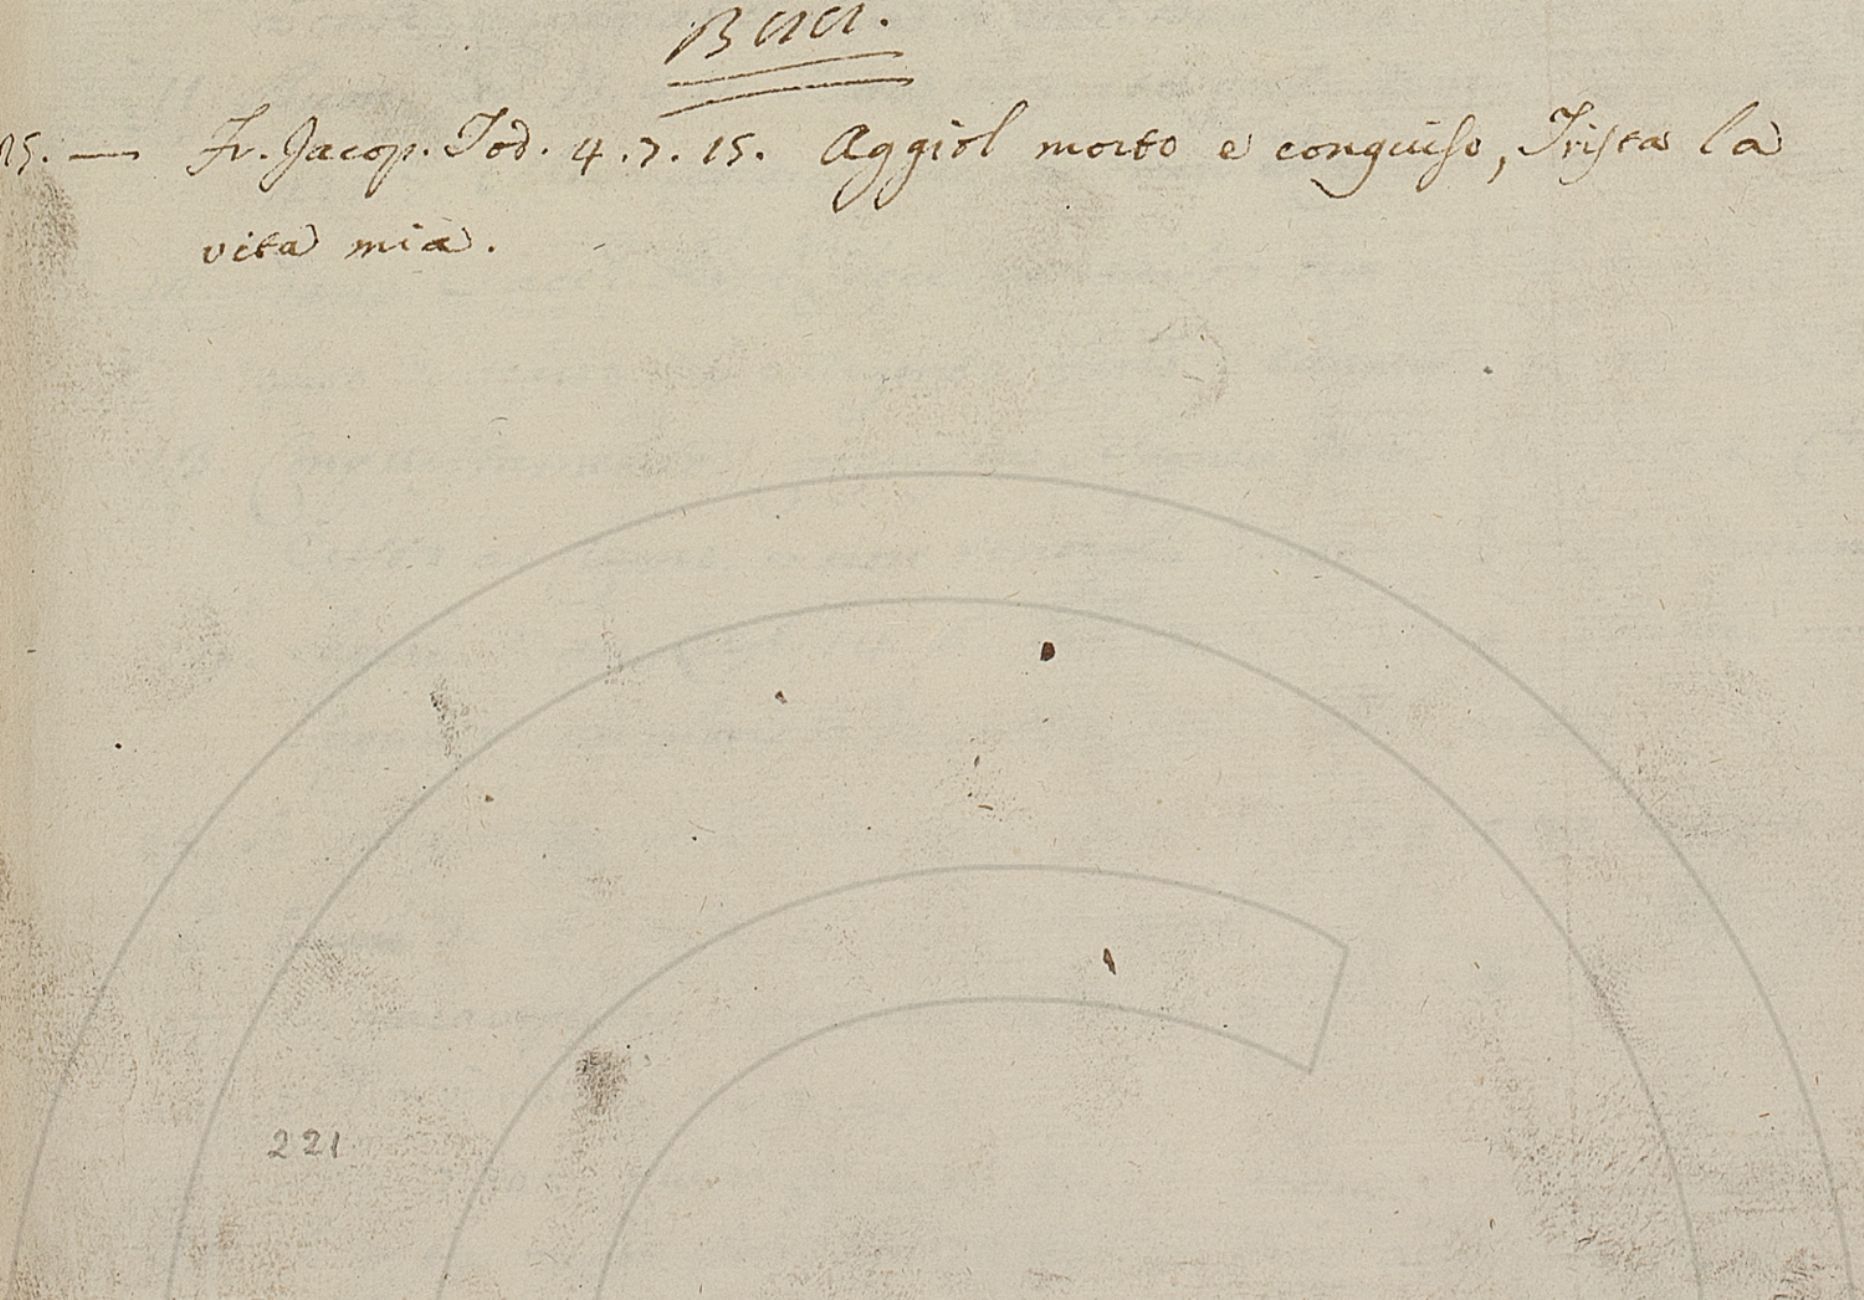 25. — Fr. Jacop. Tod. 4.7.15. Aggiol morto e conquiso, Trista la
vita mia.
221